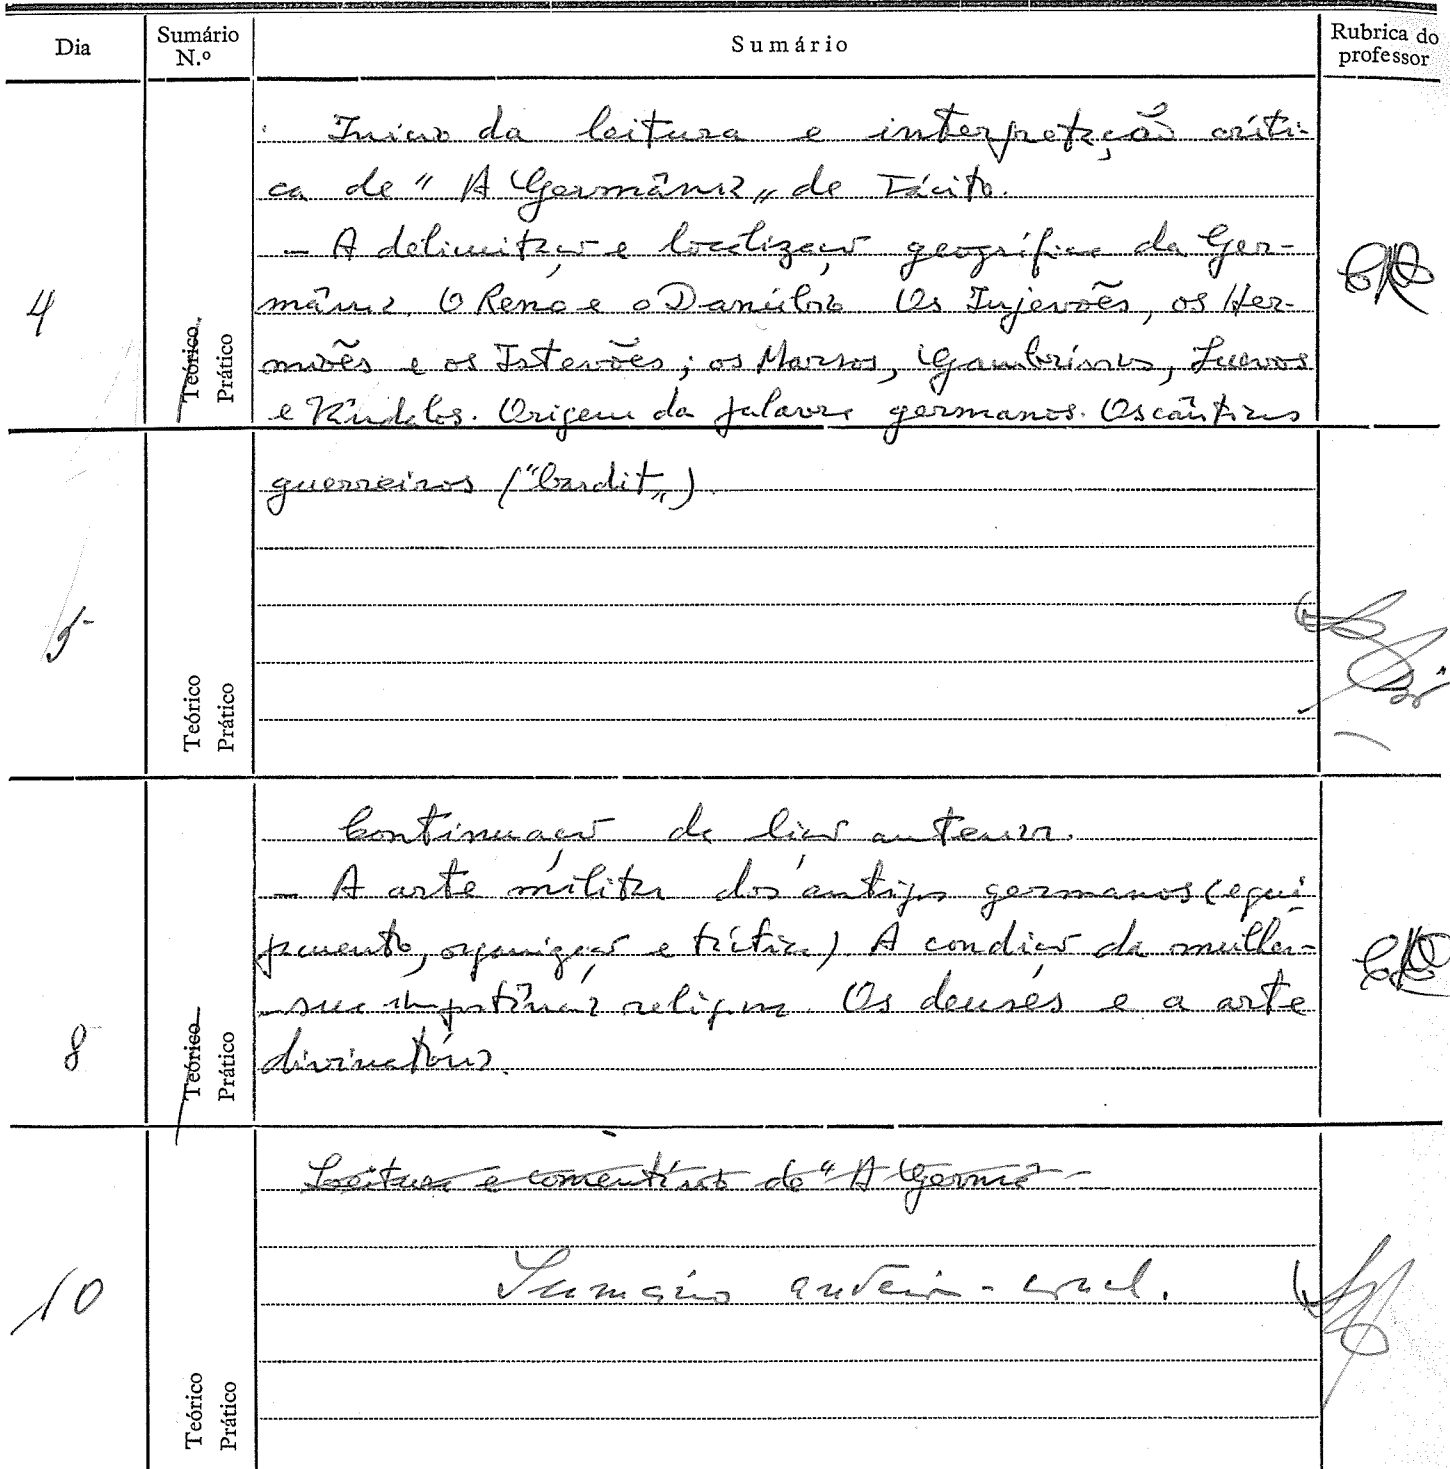 Dia Sumário N.º Sumário Rubrica do professor
Início da leitura e interpretação críti-
ca de "A Germânia" de Tácito.
- A delimitação e localização geográfica da Ger-
4 mânia. O Reno e o Danúbio. Os Injevões, os Her-
Teórico Prático miões e os Istevões; os Marsos, Gambrívios, Suevos
e Vândalos. Origem da palavra germanos. Os cânticos
guerreiros ("bardit")
5
Teórico Prático
Continuação da lição anterior.
- A arte militar dos antigos germanos (equi
pamento, organização e táctica) A condição da mulher-
sua importância religiosa. Os deuses e a arte
8 Teórico Prático divinatória.
Leitura e comentário de "A Germâ-
10 Sumário
Teórico Prático